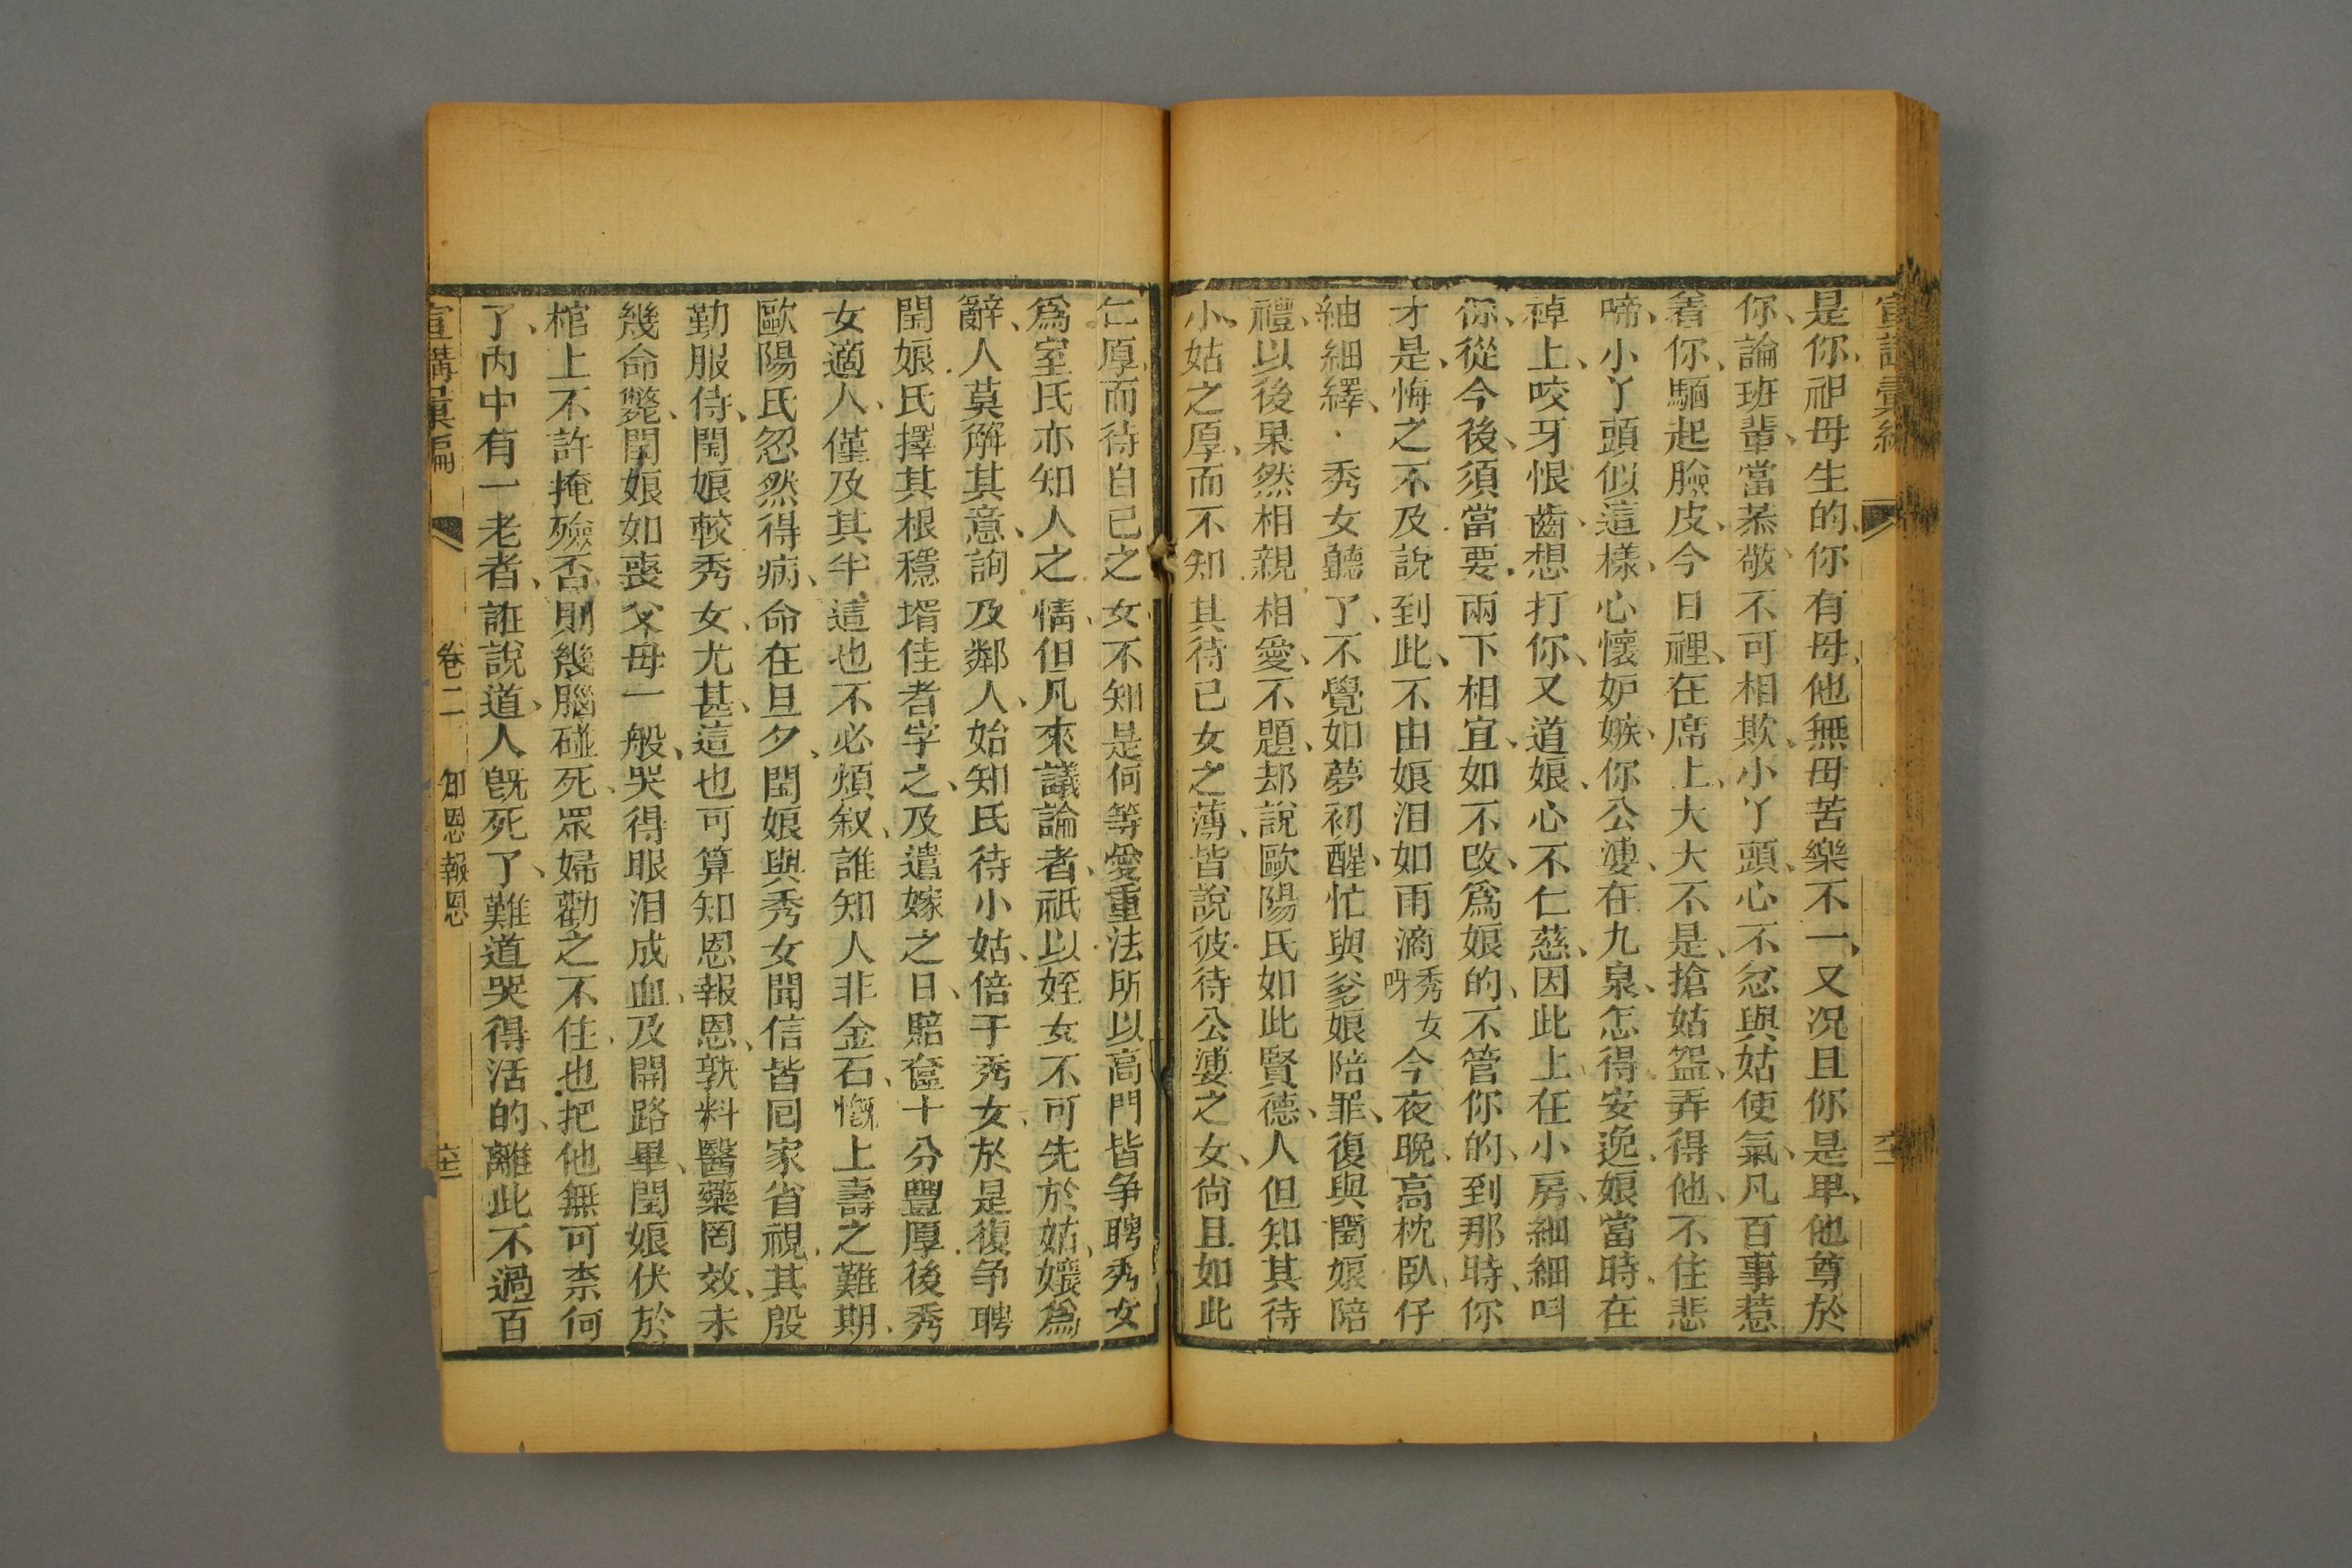 宣講彙編
是你祖母生的、你有母、他無母苦樂不一、又况且你是卑、他尊於
你、論班輩、當恭敬、不可相欺、小丫頭、心不忿與姑使氣、凡百事惹
着你、騸起臉皮、今日裡、在席上、大大不是、搶姑盌、弄得他、不住悲
啼、小丫頭似這樣、心懷妒嫉、你公婆、在九泉、怎得安逸、娘當時、在
棹上、咬牙恨齒、想打你、又道娘、心不仁慈、因此上、在小房、細細呌
你、從今後、須當要、兩下相宜、如不改、爲娘的、不管你的、到那時、你
才是、悔之不及說到此、不由娘淚如雨滴秀女呀今夜晚、高枕臥、仔
細細繹、秀女聽了、不覺如夢初醒、忙與爹娘陪罪、復與閨娘陪
禮、以後果然相親相愛、不題、却說歐陽氏如此賢德、人但知其待
小姑之厚、而不知其待已女之薄、皆說彼待公婆之女、尚且如此
仁厚、而待自已之女、不知是何等愛重法所以高門皆爭聘秀女
爲室氏亦知人之情、但凡來議論者、祇以姪女不可先於姑孃爲
辭、人莫解其意、詢及鄰人、始知氏待小姑、倍于秀女、於是復爭聘
閨娘氏擇其根穩壻佳者字之、及遣嫁之日、賠奩十分豐厚後秀
女適人、僅及其半、這也不必煩叙、誰知人非金石、慨上壽之難期、
歐陽氏忽然得病、命在旦夕、閨娘與秀女聞信皆囘家省視、其殷
勤服侍、閨娘較秀女、尤甚、這也可算知恩報恩、孰料醫藥罔效、未
幾命斃、閨娘如喪父母一般、哭得眼淚成血、及開路畢、閨娘伏於
棺上不許掩殮、否則幾腦碰死、眾婦勸之不住、也把他無可柰何
了、內中有一老者、誑說道、人旣死了、難道哭得活的、離此不過百
宣講彙編 卷二 知恩報恩